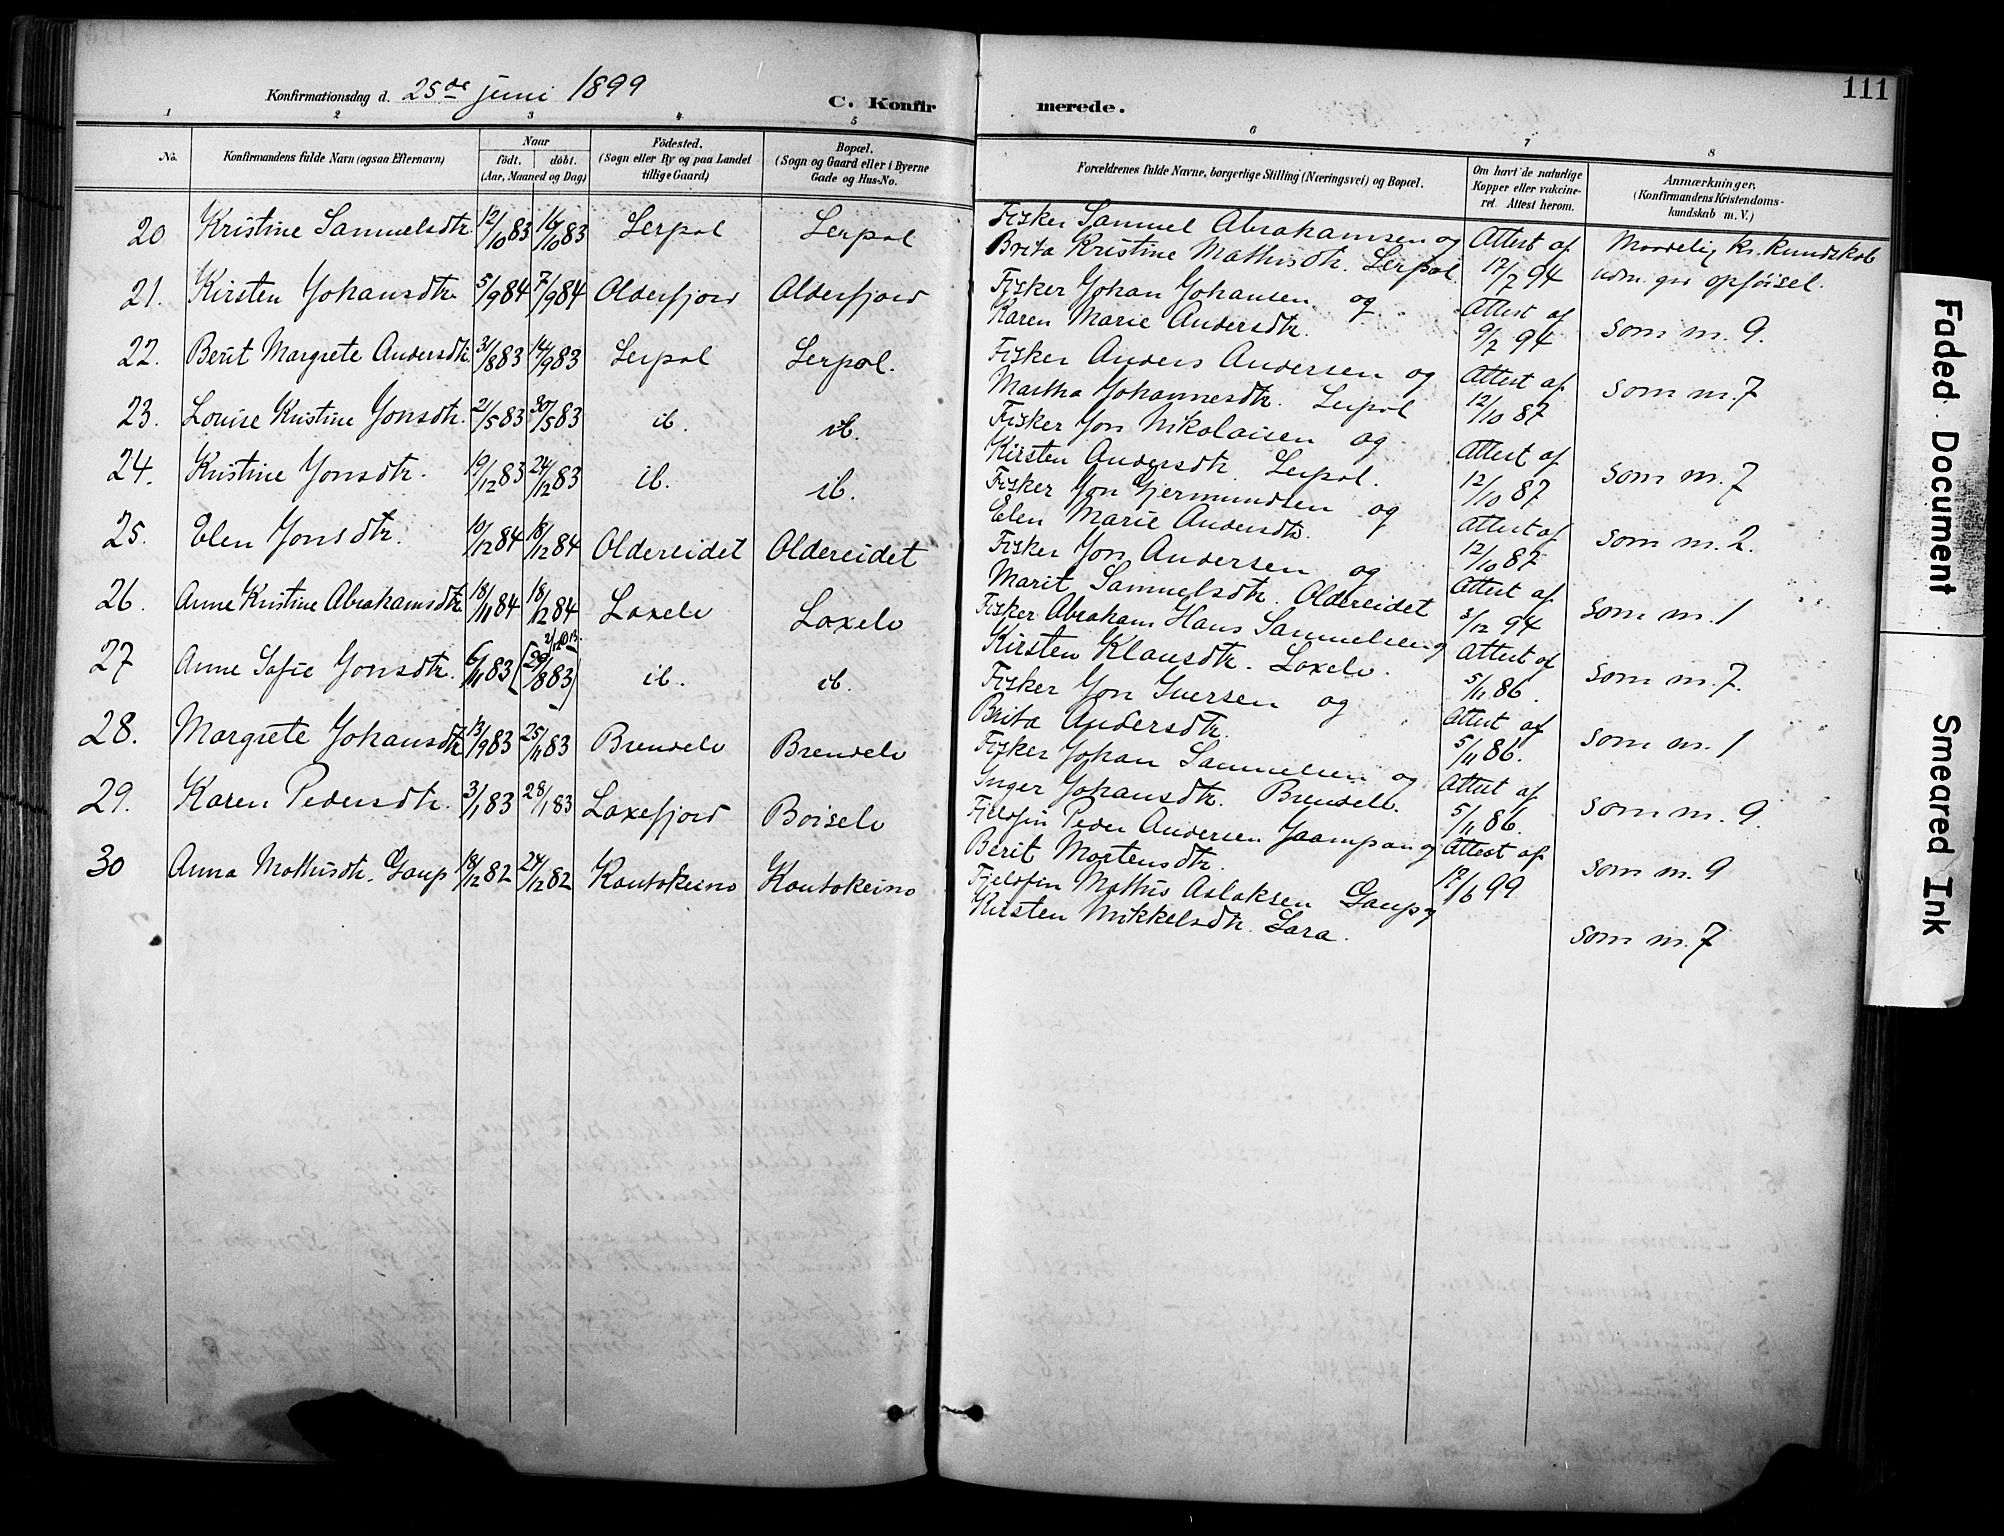 111
Konfirmationsdag d. 25de juni 1899
C. Konfirmerede.
1 2 3 4 5 6 7 8
No. Konfirmandens fulde Navn (ogsaa Efternavn) Naar født. døbt. (Aar, Maaned og Dag) Fødested. (Sogn eller By og paa Landet tillige Gaard) Bopæl. (Sogn og Gaard eller i Byerne Gade og Hus-No. Forældrenes fulde Navne, borgerlige Stilling (Næringsvei) og Bopæl. Om havt de naturlige Kopper eller vakcineret. Attest herom. Anmærkninger. (Konfirmandens Kristendomskundskab m. V.)
20 Kristine Samuelsdtr. 12/10 83 16/10 83 Lerpol Lerpol Fisker Samuel Abrahamsen og Brita Kristine Mathisdtr. Lerpol Attest af 17/7 94 kr. kundskab
21. Kirsten Johansdtr. 5/9 84 7/9 84 Olderfjord Olderfjord Fisker Johan Johansen og Karen Marie Andersdtr. Attest af 9/7 94 som m. 9.
22. Berit Margrete Andersdtr. 31/8 83 14/9 83 Lerpol Lerpol. Fisker Anders Andersen og Martha Johannesdtr. Lerpol Attest af 12/10 87 som m. 7
23. Louise Kristine Jonsdtr. 21/5 83 30/5 83 ib. ib. Fisker Jon Nikolaisen og Kirsten Andersdtr. Lerpol. Attest af 12/10 87 som m. 7
24. Kristine Jonsdtr. 19/12 83 24/12 83 ib. ib. Fisker Jon Gjermundsen og Elen Marie Andersdtr. Attest af 12/10 87 som m. 2.
25. Elen Jonsdtr. 10/12 84 18/12 84 Oldereidet Oldereidet Fisker Jon Andersen og Marit Samuelsdtr. Oldereidet Attest af 3/12 94 som m. 1
26. Anne Kristine Abrahamsdtr. 18/11 84 18/12 84 Laxelv Laxelv Fisker Abraham Hans Samuelsen og Kirsten Klausdtr. Laxelv. Attest af 5/11 86. som m. 7.
27 Anne Sofie Jonsdtr. 6/11 83 (29/8 83) ib. ib. Fisker Jon Iversen og Brita Andersdtr. Attest af 5/11 86. som m. 1
28. Margrete Johansdtr 13/9 83 25/11 83 Brendelv Brendelv Fisker Johan Samuelsen og Inger Johansdtr. Brendelv. Attest af 5/11 86. som m. 9.
29. Karen Pedersdtr. 3/1 83 28/1 83 Laxefjord Børselv Fjeldfin Peder Andersen Jaampan og Berit Mortensdtr. Attest af 17/6 99 som m. 9
30 Anna Mathisdtr. Gaup 18/12 82 24/12 82 Kautokeino Kautokeino Fjeldfin Mathis Aslaksen Gaup og Kirsten Mikkelsdtr. Sara. som m. 7
Faded Document
Smeared Ink